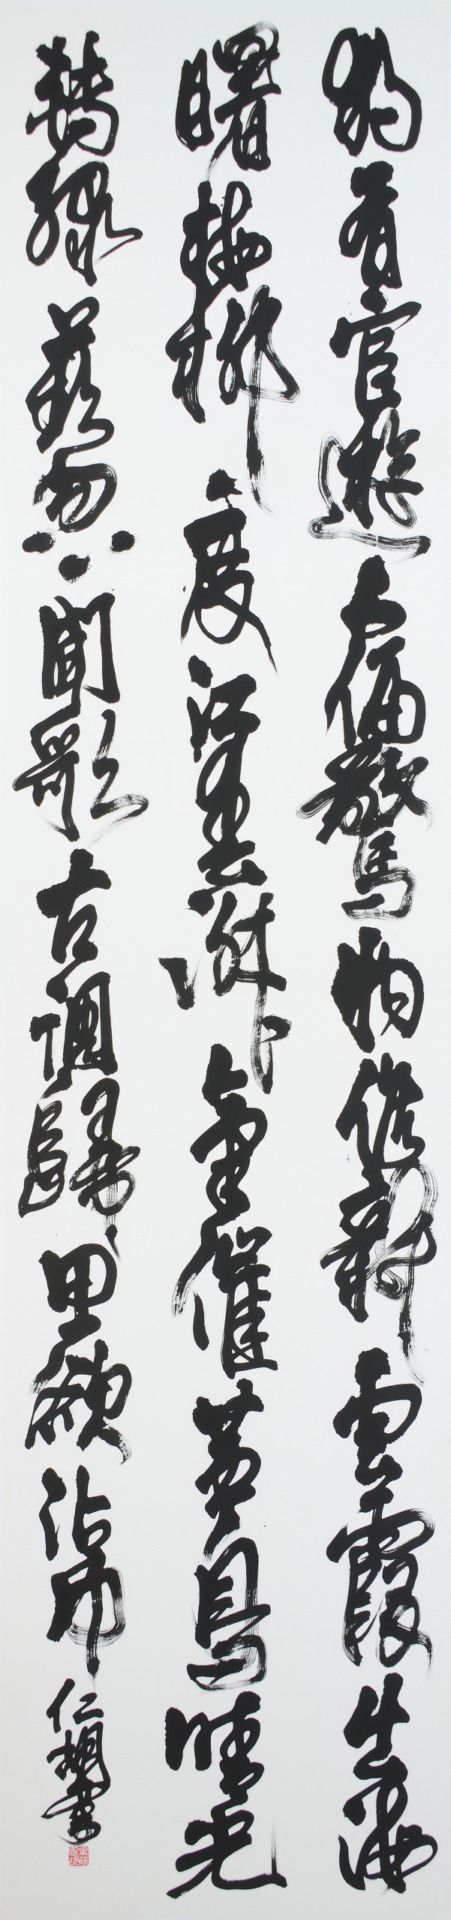 獨有宦遊人偏驚物候新雲霞出海
曙梅柳度江春淑氣催黄鳥晴光
轉緑蘋忽聞歌古調歸思欲沾巾 仁書